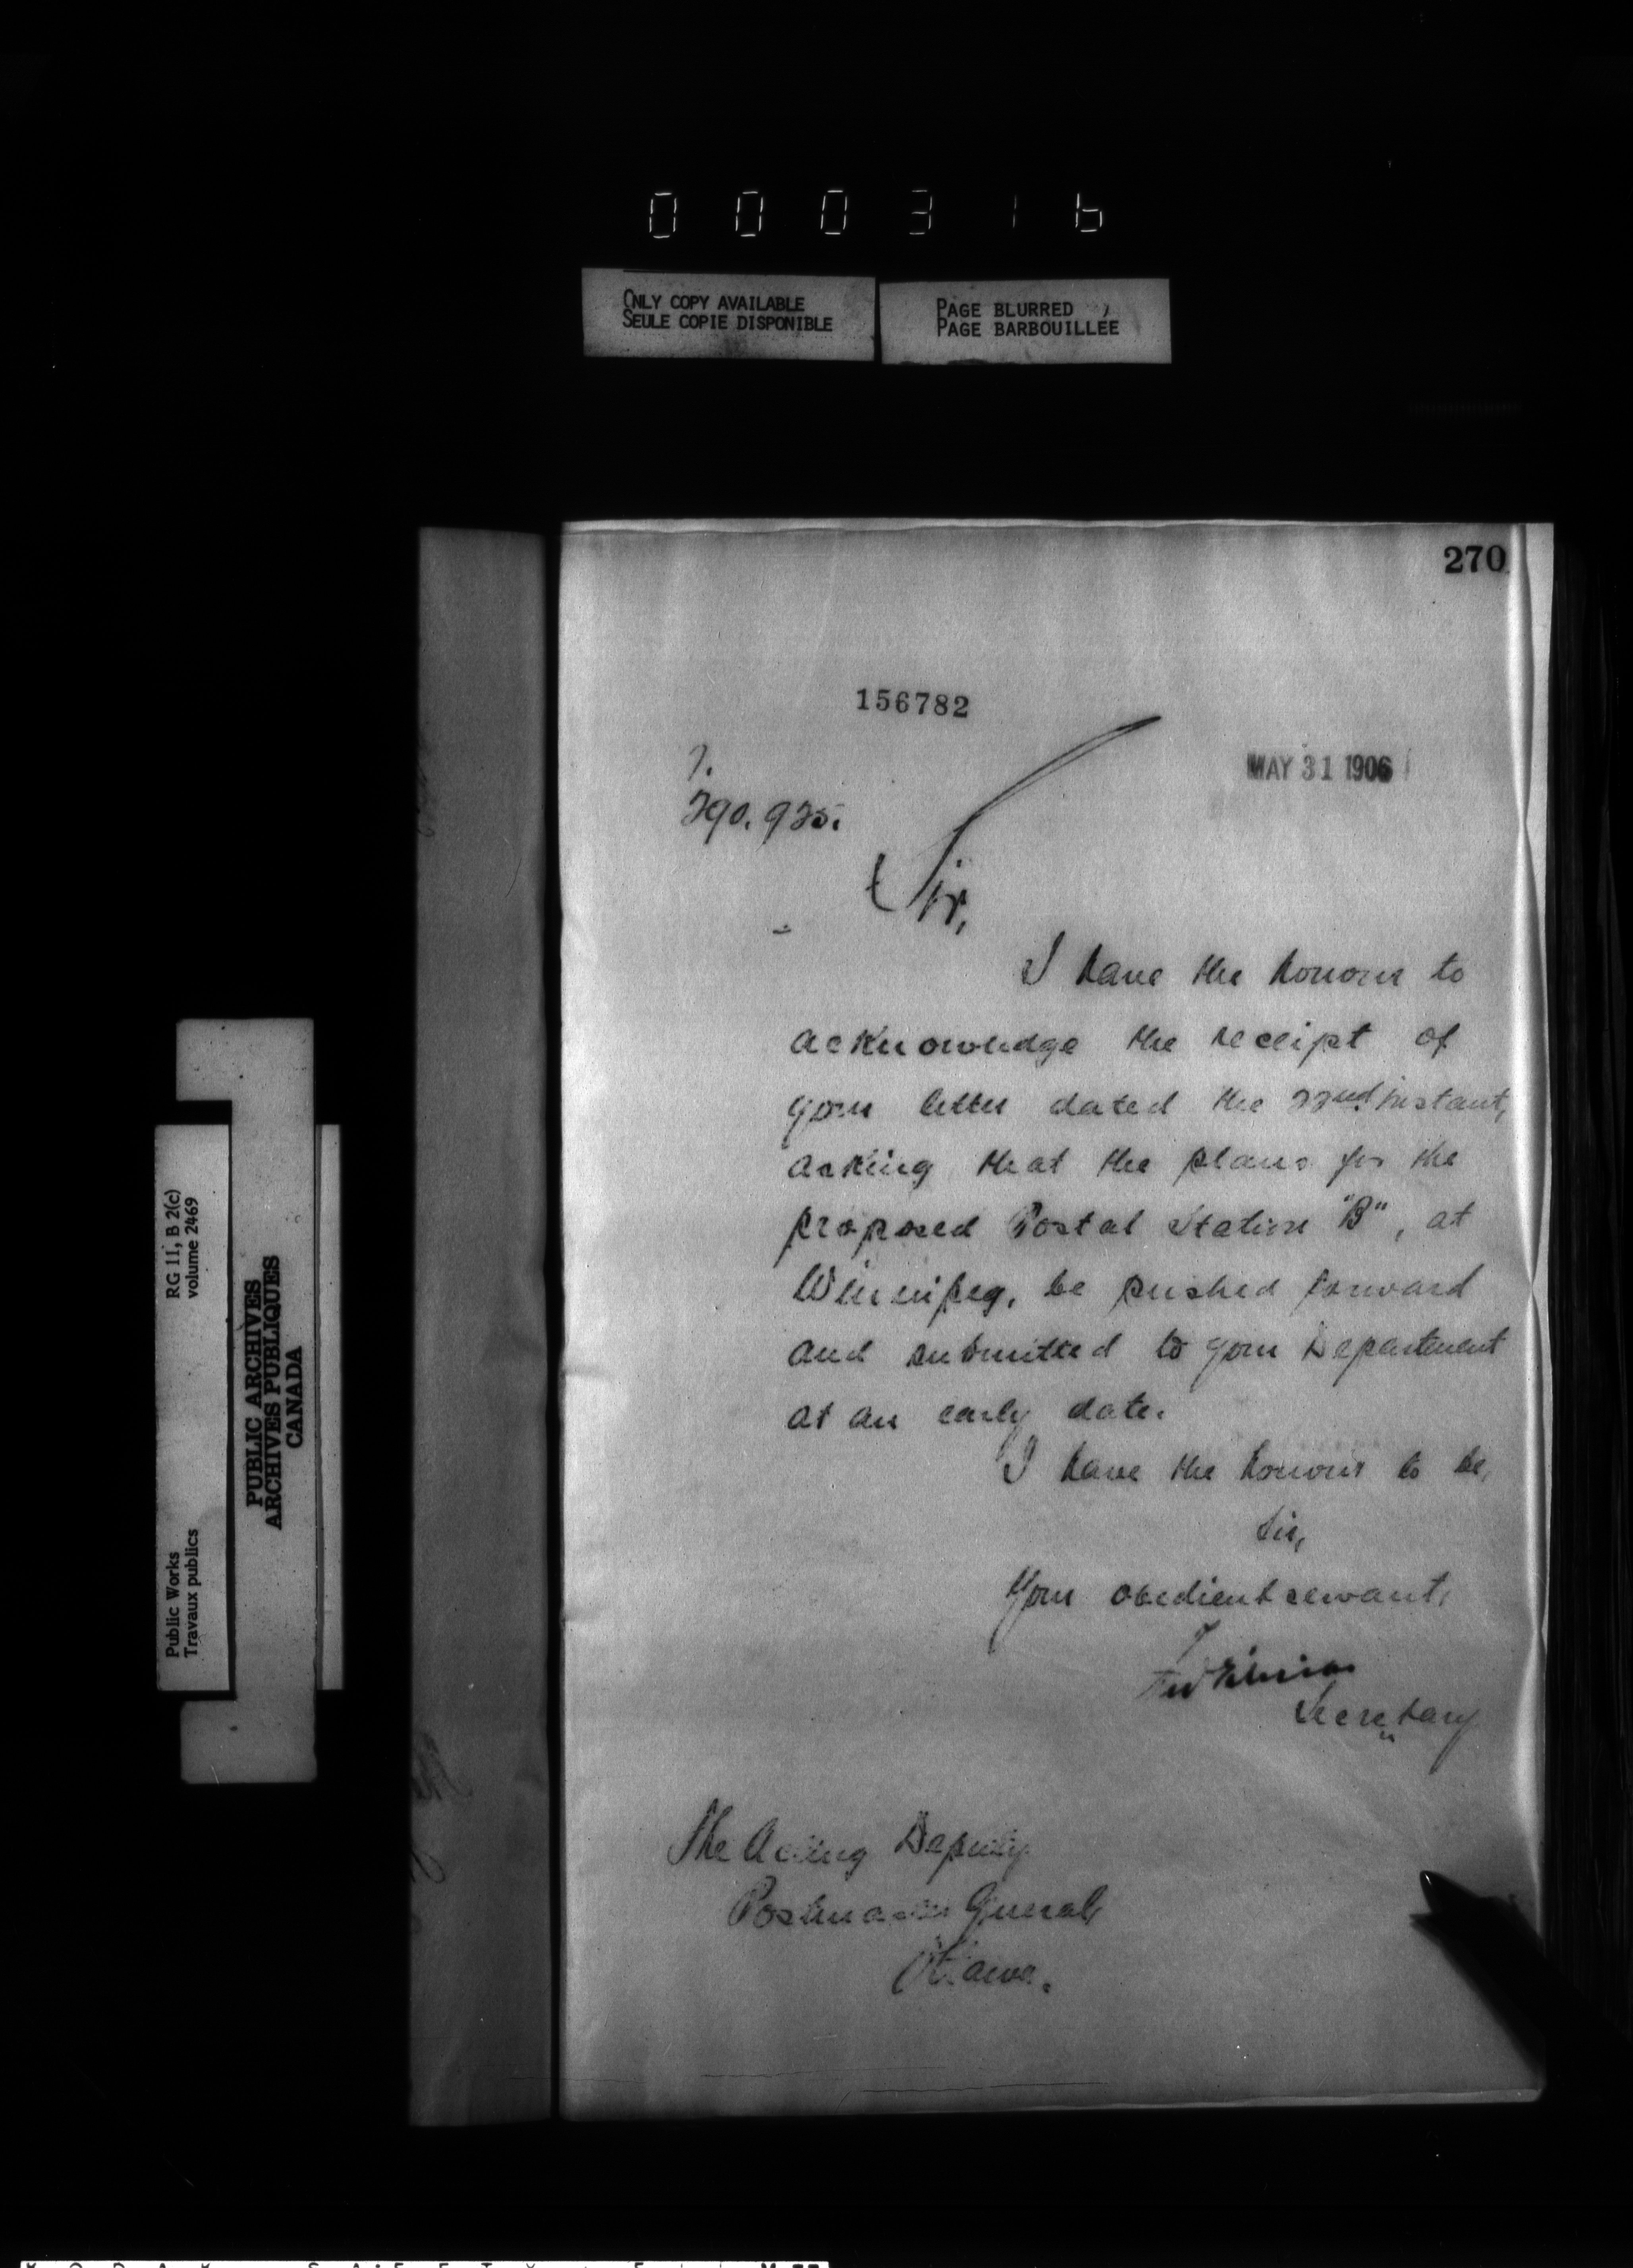 000316
ONLY COPY AVAILABLE
SEULE COPIE DISPONIBLE
PAGE BLURRED
PAGE BARBOUILLEE
270
156782
MAY 31 1906
290.925.
Sir,
I have the honour to
acknowledge the receipt of
your letter dated the 22nd instant,
asking that the plans for the
proposed Postal Station "B", at
Winnipeg, be pushed forward
and submitted to your Department
at an early date.
I have the honour to be,
Sir,
Your obedient servant,
Secretary
The Acting Deputy
Postmaster General,
Ottawa.
RG 11, B 2(c)
volume 2469
PUBLIC ARCHIVES
ARCHIVES PUBLIQUES
CANADA
Public Works
Travaux publics